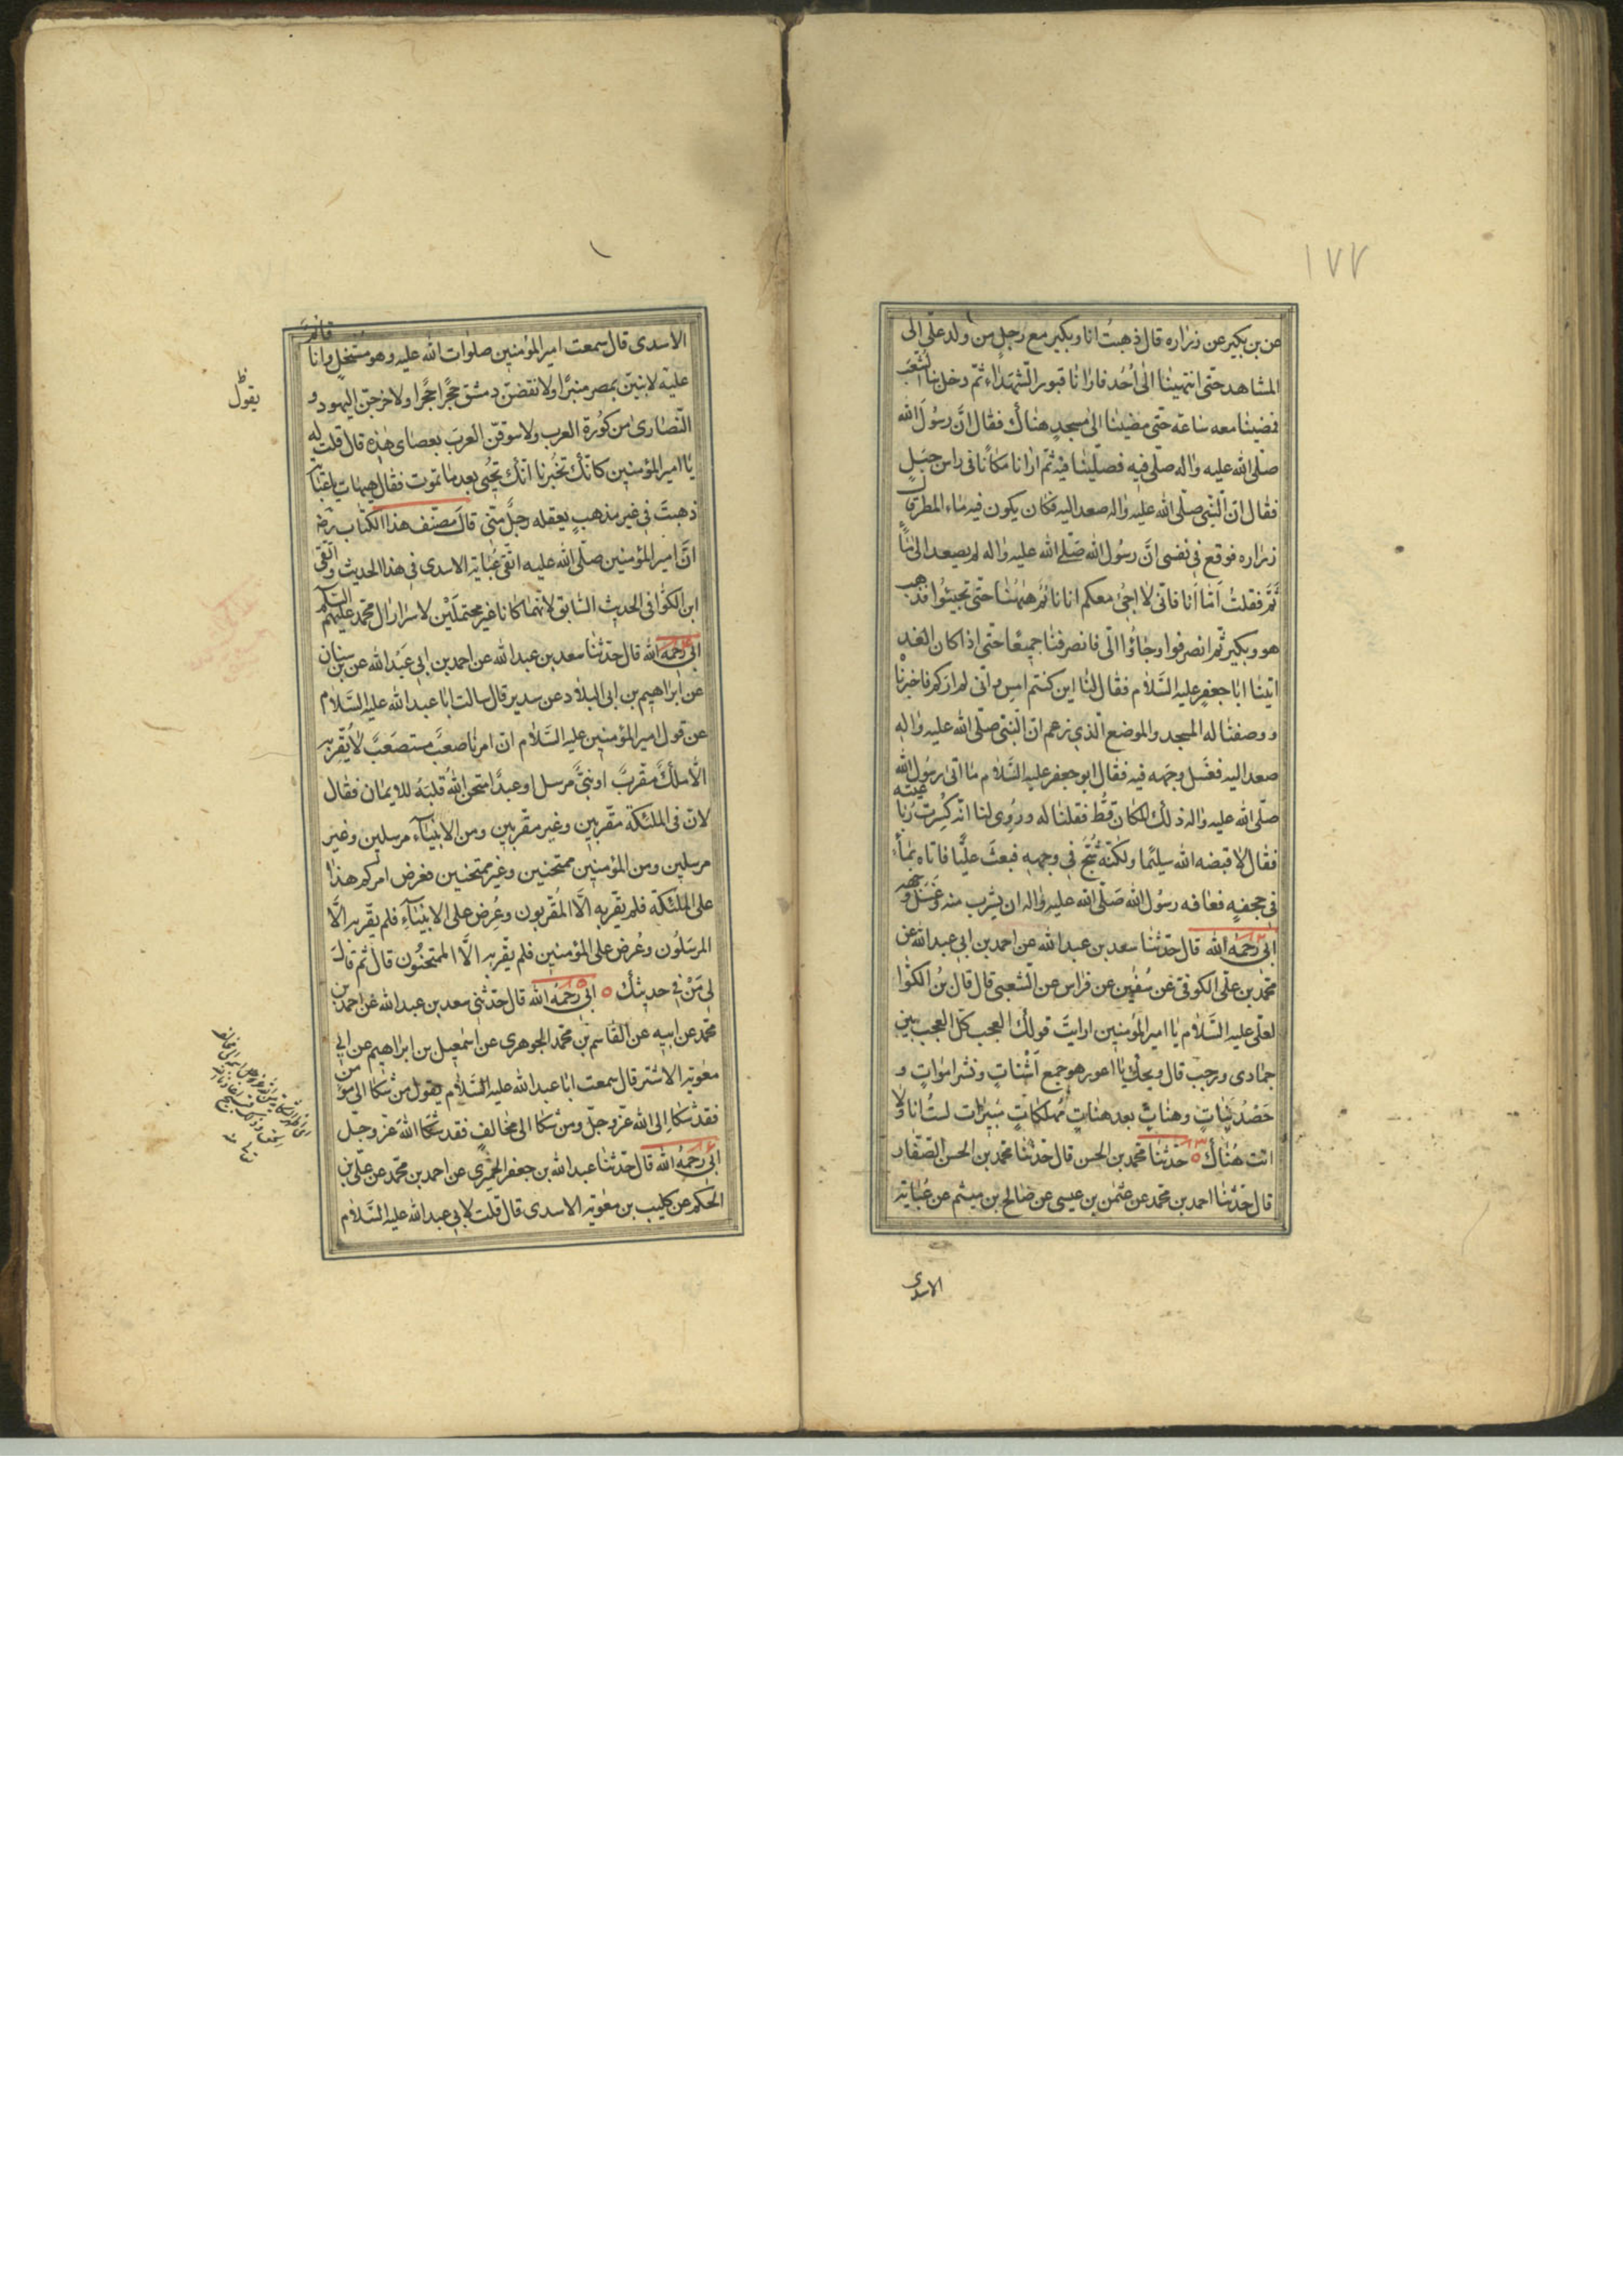 ١٧٧
عن بن بكير عن زراره قال ذهبت انا وبكير مع رجل من ولد علي الى
المشاهد حتى انتهينا الى احد فارانا قبور الشهداء ثم دخل بنا الشعب
فمضينا معه ساعة حتى مضينا الى مسجد هناك فقال ان رسول الله
صلى الله عليه واله صلى فيه فصلينا فيه ثم ارانا مكانا في راس جبل
فقال ان النبي صلى الله عليه واله صعد اليه فكان يكون فيه ماء المطر قال
زراره فوقع في نفسى ان رسول الله صلى الله عليه واله لم يصعد الى ماء
ثم فقلت اما انا فاني لا اجئ معكم انا نائم ههنا حتى تجيئوا فذهب
هو وبكير ثم انصرفوا وجاؤا الى فانصرفنا جميعا حتى اذا كان الغد
اتينا ابا جعفر عليه السلام فقال لنا اين كنتم امس فاني لم اركم فاخبرناه
ووصفنا له المسجد والموضع الذي زعم ان النبي صلى الله عليه واله
صعد اليه فغسل وجهه فيه فقال ابو جعفر عليه السلام ما اتى رسول الله
صلى الله عليه واله ذلك المكان قط فقلنا له وروى لنا انه كسرت رباعيته
فقال لا قبضه الله سليما ولكنه شج في وجهه فبعث عليا فاتاه بماء
في حجفة فعافه رسول الله صلى الله عليه واله ان يشرب منه وغسل وجهه
١٢ ابى رحمه الله قال حدثنا سعد بن عبد الله عن احمد بن ابي عبد الله عن
محمد بن على الكوفي عن سفين عن فراس عن الشعبى قال قال بن الكوا
لعلى عليه السلام يا امير المؤمنين ارايت قولك العجب كل العجب بين
جمادى ورجب قال ويحك يا اعور هو جمع اشتات ونشر اموات و
حصد نبات وهنات بعد هنات مهلكات مبيرات لست انا ولا
انت هناك ١٣ حدثنا محمد بن الحسن قال حدثنا محمد بن الحسن الصفار
قال حدثنا احمد بن محمد عن عثمن بن عيسى عن صالح بن ميثم عن عباية
الاسدى
الاسدى قال سمعت امير المؤمنين صلوات الله عليه وهو مشتغل وانا قائم
عليه لابنين بمصر منبرا ولا نقضن دمشق حجرا حجرا ولا خرجن اليهود و
يقول
النصارى من كورة العرب ولا سوقن العرب بعصاى هذه قال قلت له
يا امير المؤمنين كانك تخبرنا انك تحيى بعد ما تموت فقال هيهات يا عباية
ذهبت في غير مذهب يعقله رجل منى قال مصنف هذا الكتاب رضه
ان امير المؤمنين صلى الله عليه اتقى عباية الاسدى في هذا الحديث واتقى
ابن الكوا في الحديث السابق لانهما كانا غير محتملين لاسرار ال محمد عليهم السلم
١٤ ابى رحمه الله قال حدثنا سعد بن عبد الله عن احمد بن ابي عبد الله عن بن سنان
عن ابراهيم بن ابي البلاد عن سدير قال سالت ابا عبد الله عليه السلام
عن قول امير المؤمنين عليه السلام ان امرنا صعب مستصعب لا يقر به
الا ملك مقرب او نبى مرسل او عبد امتحن الله قلبه للايمان فقال
لان في الملئكة مقربين وغير مقربين ومن الانبياء مرسلين وغير
مرسلين ومن المؤمنين ممتحنين وغير ممتحنين فعرض امركم هذا
على الملئكة فلم يقر به الا المقربون وعرض على الانبياء فلم يقر به الا
المرسلون وعرض على المؤمنين فلم يقر به الا الممتحنون قال ثم قال
لى مر في حديثك ١٥ ابى رحمه الله قال حدثنى سعد بن عبد الله عن احمد بن
محمد عن ابيه عن القاسم بن محمد الجوهرى عن اسمعيل بن ابراهيم عن ابي
معوية الاشتر قال سمعت ابا عبد الله عليه السلام يقول من شكا الى مؤمن
فقد شكا الى الله عز وجل ومن شكا الى مخالف فقد شكا الله عز وجل
١٦ ابى رحمه الله قال حدثنا عبد الله بن جعفر الحميرى عن احمد بن محمد عن على بن
الحكم عن كليب بن معوية الاسدى قال قلت لابي عبد الله عليه السلام